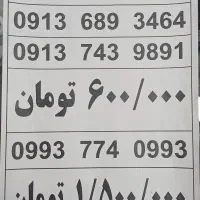 0913 689 3464
0913 743 9891
۶۰۰/۰۰۰ تومان
0993 774 0993
۱/۵۰۰/۰۰۰ تومان